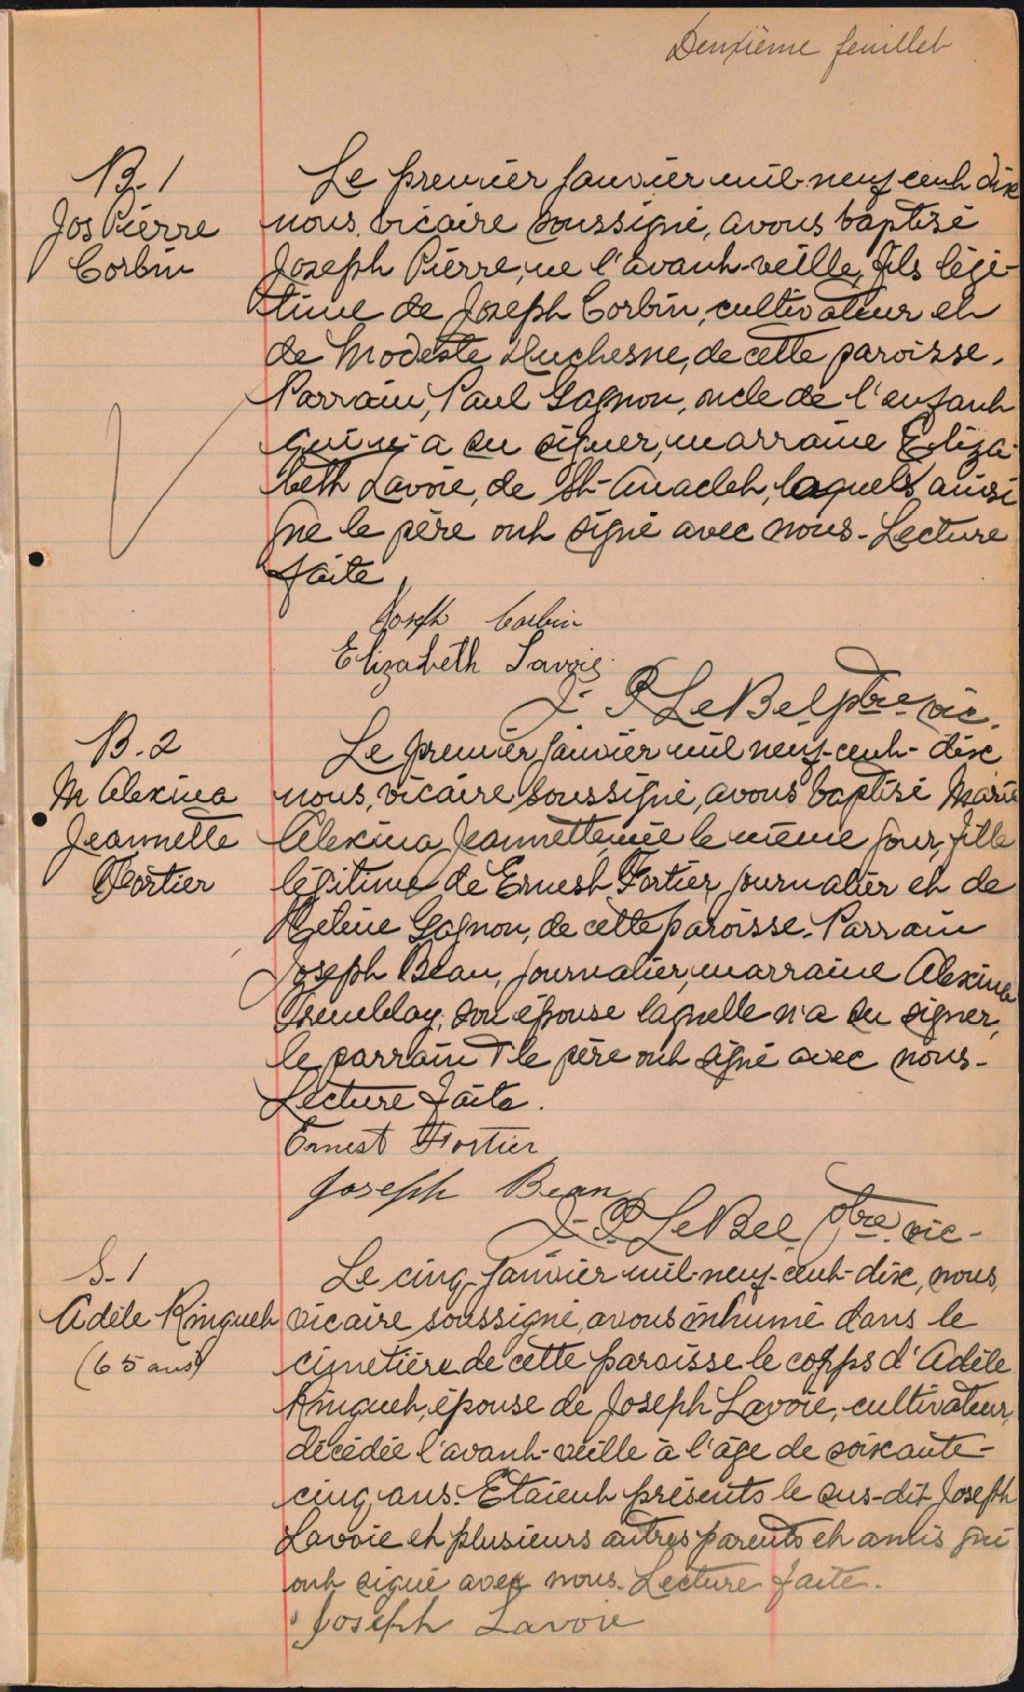 Deuxième feuillet
B. 1
Jos Pierre
Corbin
Le premier janvier mil-neuf-cent dix
nous, vicaire soussigné, avons baptisé
Joseph Pierre, né l'avant-veille, fils légi-
time de Joseph Corbin, cultivateur et
de Modeste Duchesne, de cette paroisse.
Parrain, Paul Gagnon, oncle de l'enfant
qui n'a su signer, marraine Eliza-
beth Lavoie, de St-Anaclet, laquels ainsi
que le père ont signé avec nous. Lecture
faite
Joseph Corbin
Elizabeth Lavoie
J. P. LeBel ptre vic.
B. 2
M Alexina
Jeannette
Fortier
Le premier janvier mil neuf-cent-dix
nous, vicaire soussigné, avons baptisé Marie
Alexina Jeannette, née le même jour, fille
légitime de Ernest Fortier, journalier et de
Heléne Gagnon, de cette paroisse. Parrain
Joseph Bean, journalier, marraine Alexina
Tremblay, son épouse laquelle n'a su signer,
le parrain & le père ont signé avec nous-
Lecture faite.
Ernest Fortier
Joseph Bean
J. P. LeBel ptre vic-
S. 1
Adèle Ringuet
(65 ans)
Le cinq janvier mil-neuf-cent-dix, nous,
vicaire soussigné, avons inhumé dans le
cimetière de cette paroisse le corps d'Adèle
Ringuet, épouse de Joseph Lavoie, cultivateur,
décédée l'avant-veille à l'âge de soixante-
cinq ans. Etaient présents le sus-dit Joseph
Lavoie et plusieurs autres parents et amis qui
ont signé avec nous. Lecture faite.
Joseph Lavoie